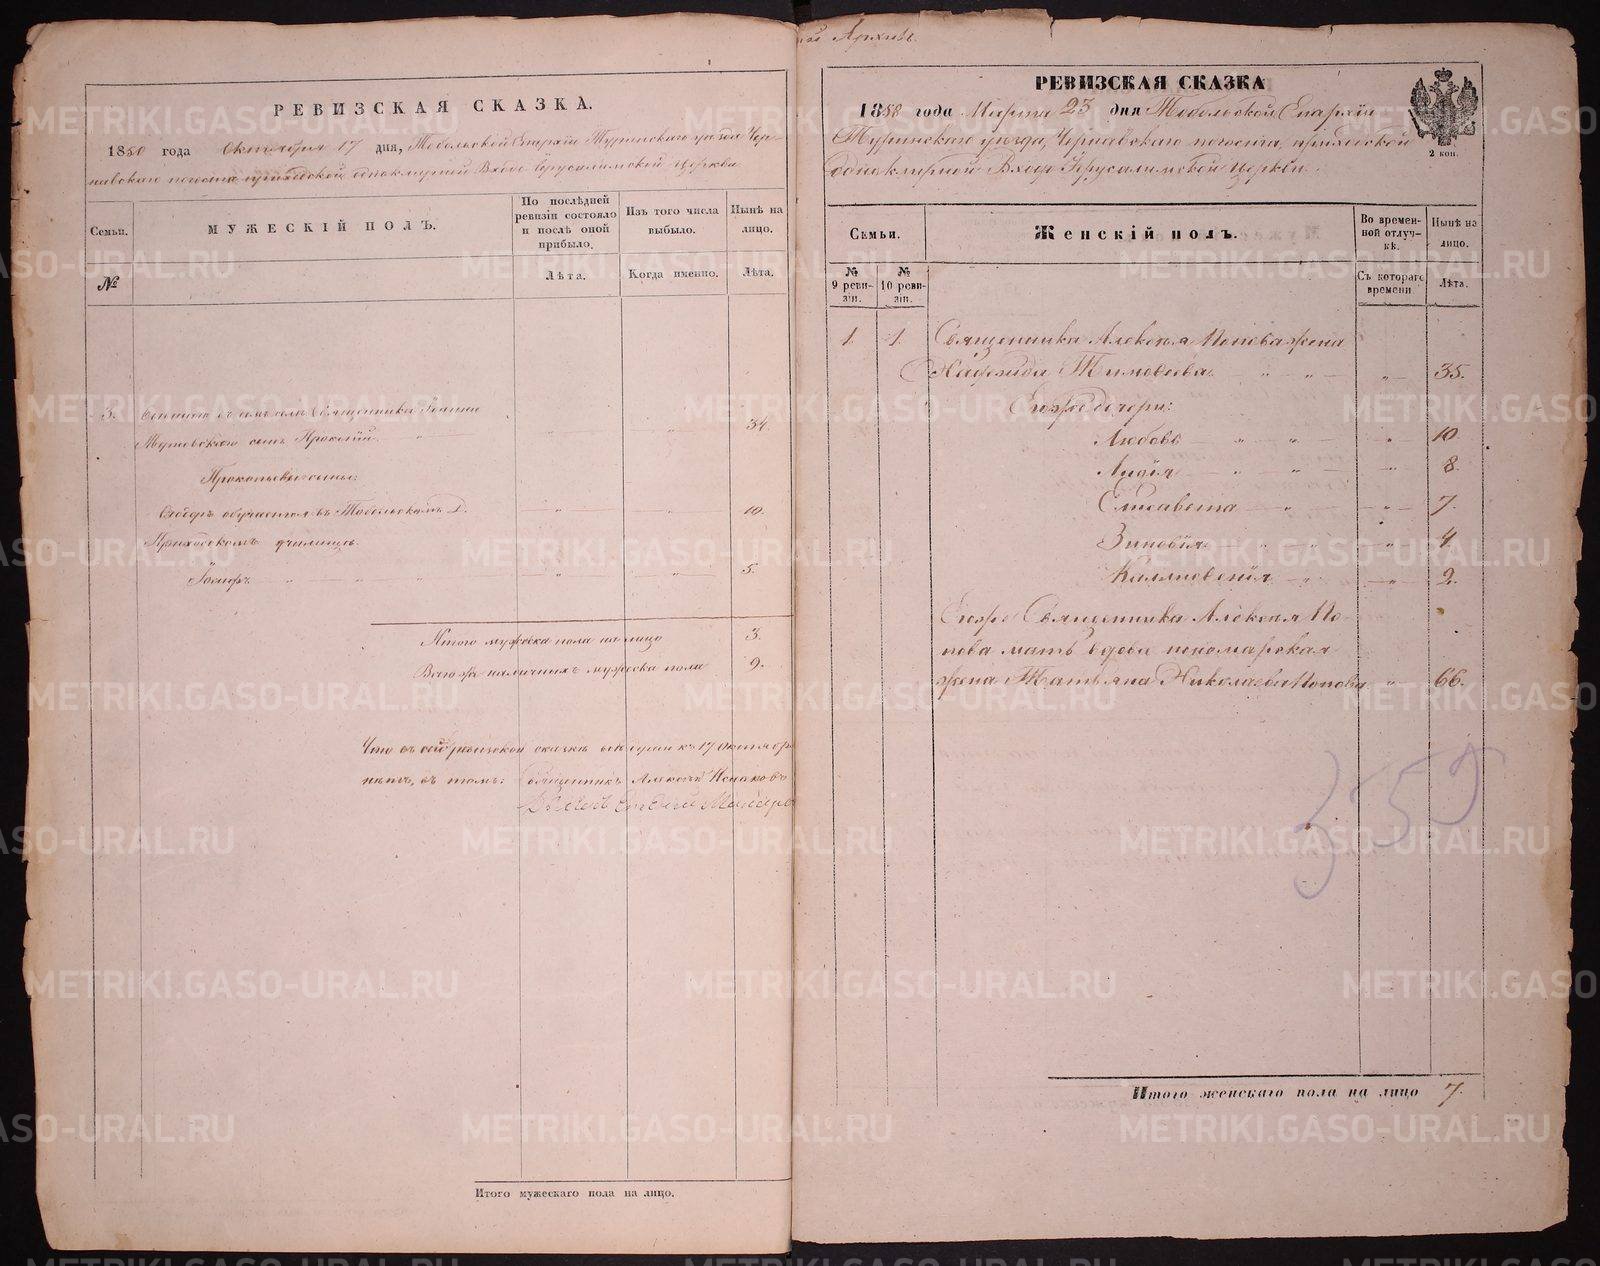 РЕВИЗСКАЯ СКАЗКА.
1850 года Октября 17 дня, Тобольской Епархіи Туринскаго уѣзда Чер-
навскаго погоста приходской одноклирной Входо Іерусалимской церкви
Семьи.
№
МУЖЕСКІЙ ПОЛЪ.
По послѣдней ревизіи состояло и послѣ оной прибыло.
Лѣта.
Изъ того числа выбыло.
Когда именно.
Нынѣ на лицо.
Лѣта.
3. Священника Іоанна
сынъ Прокопій 34.
Прокопьевы сыны:
обучается въ Тобольскомъ Д. 10.
Приходскомъ училищѣ.
Іосифъ 5.
Итого мужеска пола на лицо 3.
Всего наличныхъ мужеска пола 9.
Что въ сей ревизской сказкѣ 17 Октября
въ томъ: Священникъ Алексѣй
Итого мужескаго пола на лицо.
Архивъ
РЕВИЗСКАЯ СКАЗКА
2 коп.
1858 года Марта 23 дня Тобольской Епархіи
Туринскаго уѣзда, Чернавскаго погоста, приходской
одноклирной Входо Іерусалимской церкви.
Семьи.
№ 9 реви-зіи.
№ 10 реви-зіи.
Женскій полъ.
Во времен-ной отлуч-кѣ.
Съ котораго времени
Нынѣ на лицо.
Лѣта.
1. 1. Священника Алексѣя Попова жена
Надежда Тимоѳеева 35.
Его же дочери:
Любовь 10.
Лидія 8.
Елисавета 7.
Зиновія 4.
2.
Его же Священника Алексѣя По-
пова мать вдова пономарская
жена Татьяна Николаева Попова 66.
359
Итого женскаго пола на лицо 7.
METRIKI.GASO-URAL.RU